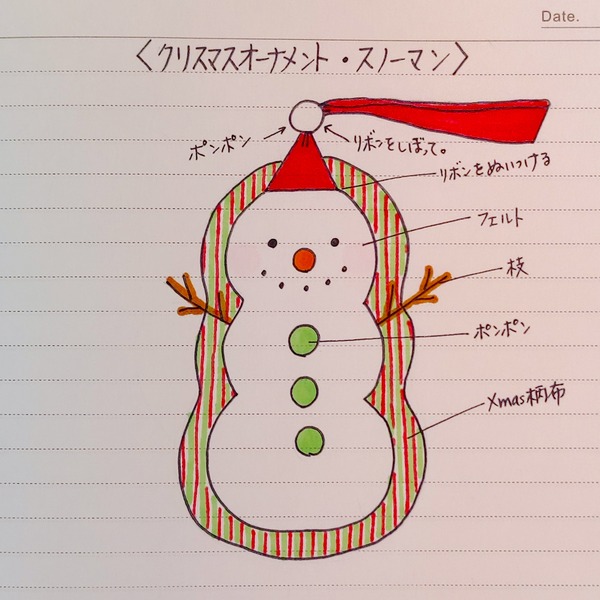 Date.
〈クリスマスオーナメント・スノーマン〉
ポンポン
リボンをしぼって。
リボンをぬいつける
フェルト
枝
ポンポン
Xmas柄布